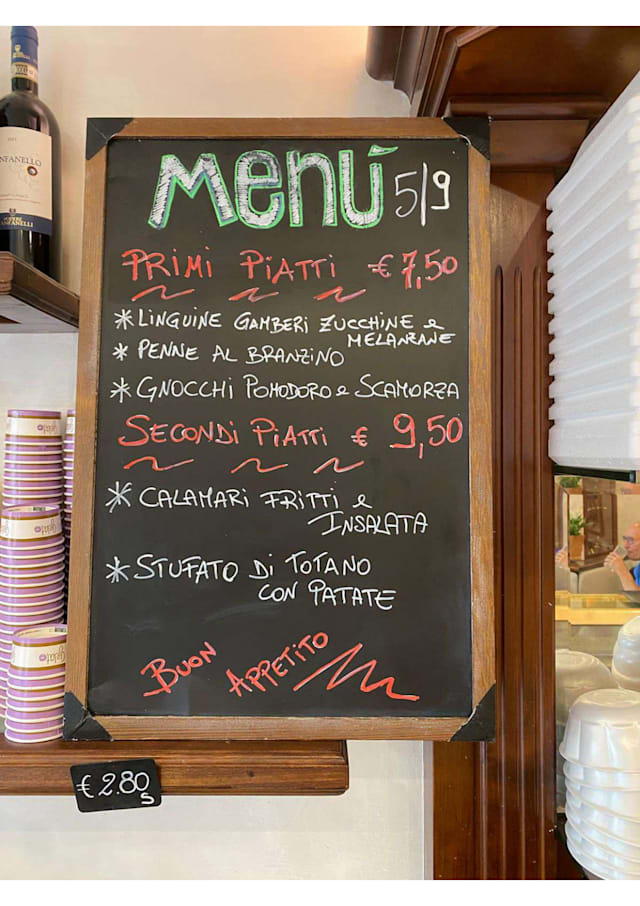 MENÙ 5/9
PRIMI PIATTI € 7,50
* LINGUINE GAMBERI ZUCCHINE e
MELANZANE
* PENNE AL BRANZINO
* GNOCCHI POMODORO e SCAMORZA
SECONDI PIATTI € 9,50
* CALAMARI FRITTI e
INSALATA
* STUFATO DI TOTANO
CON PATATE
BUON APPETITO
€ 2.80
S